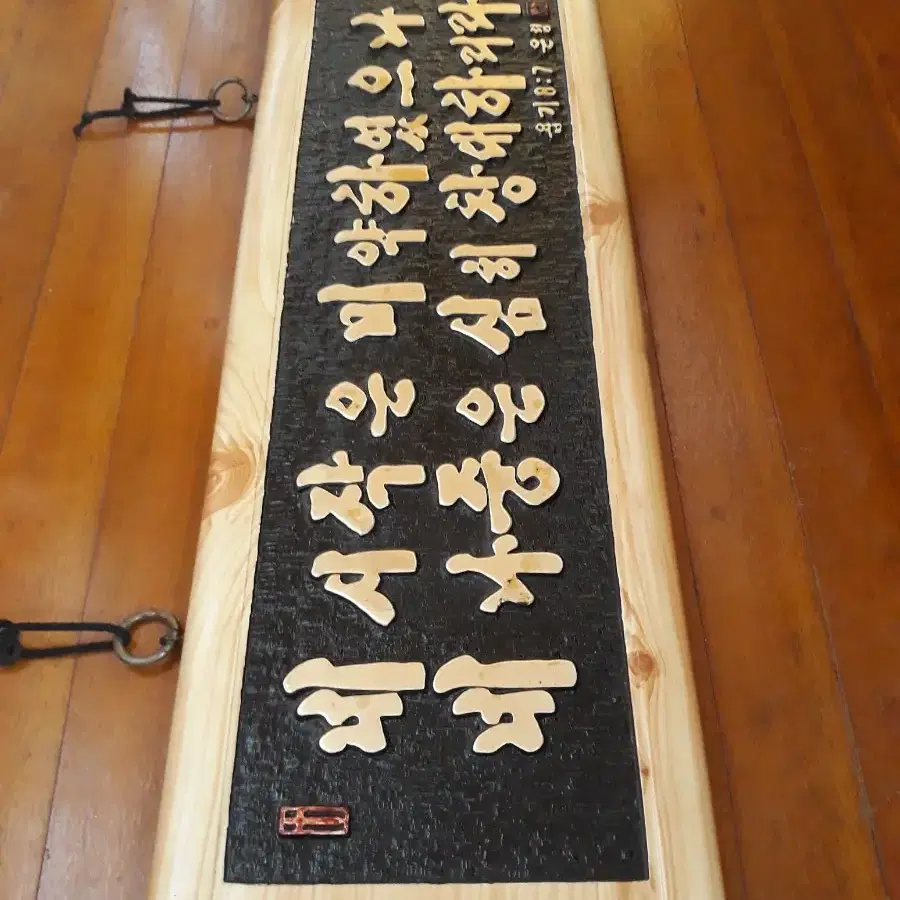 네 시작은 미약하였으나
네 나중은 심히 창대하리라
욥기 8:7